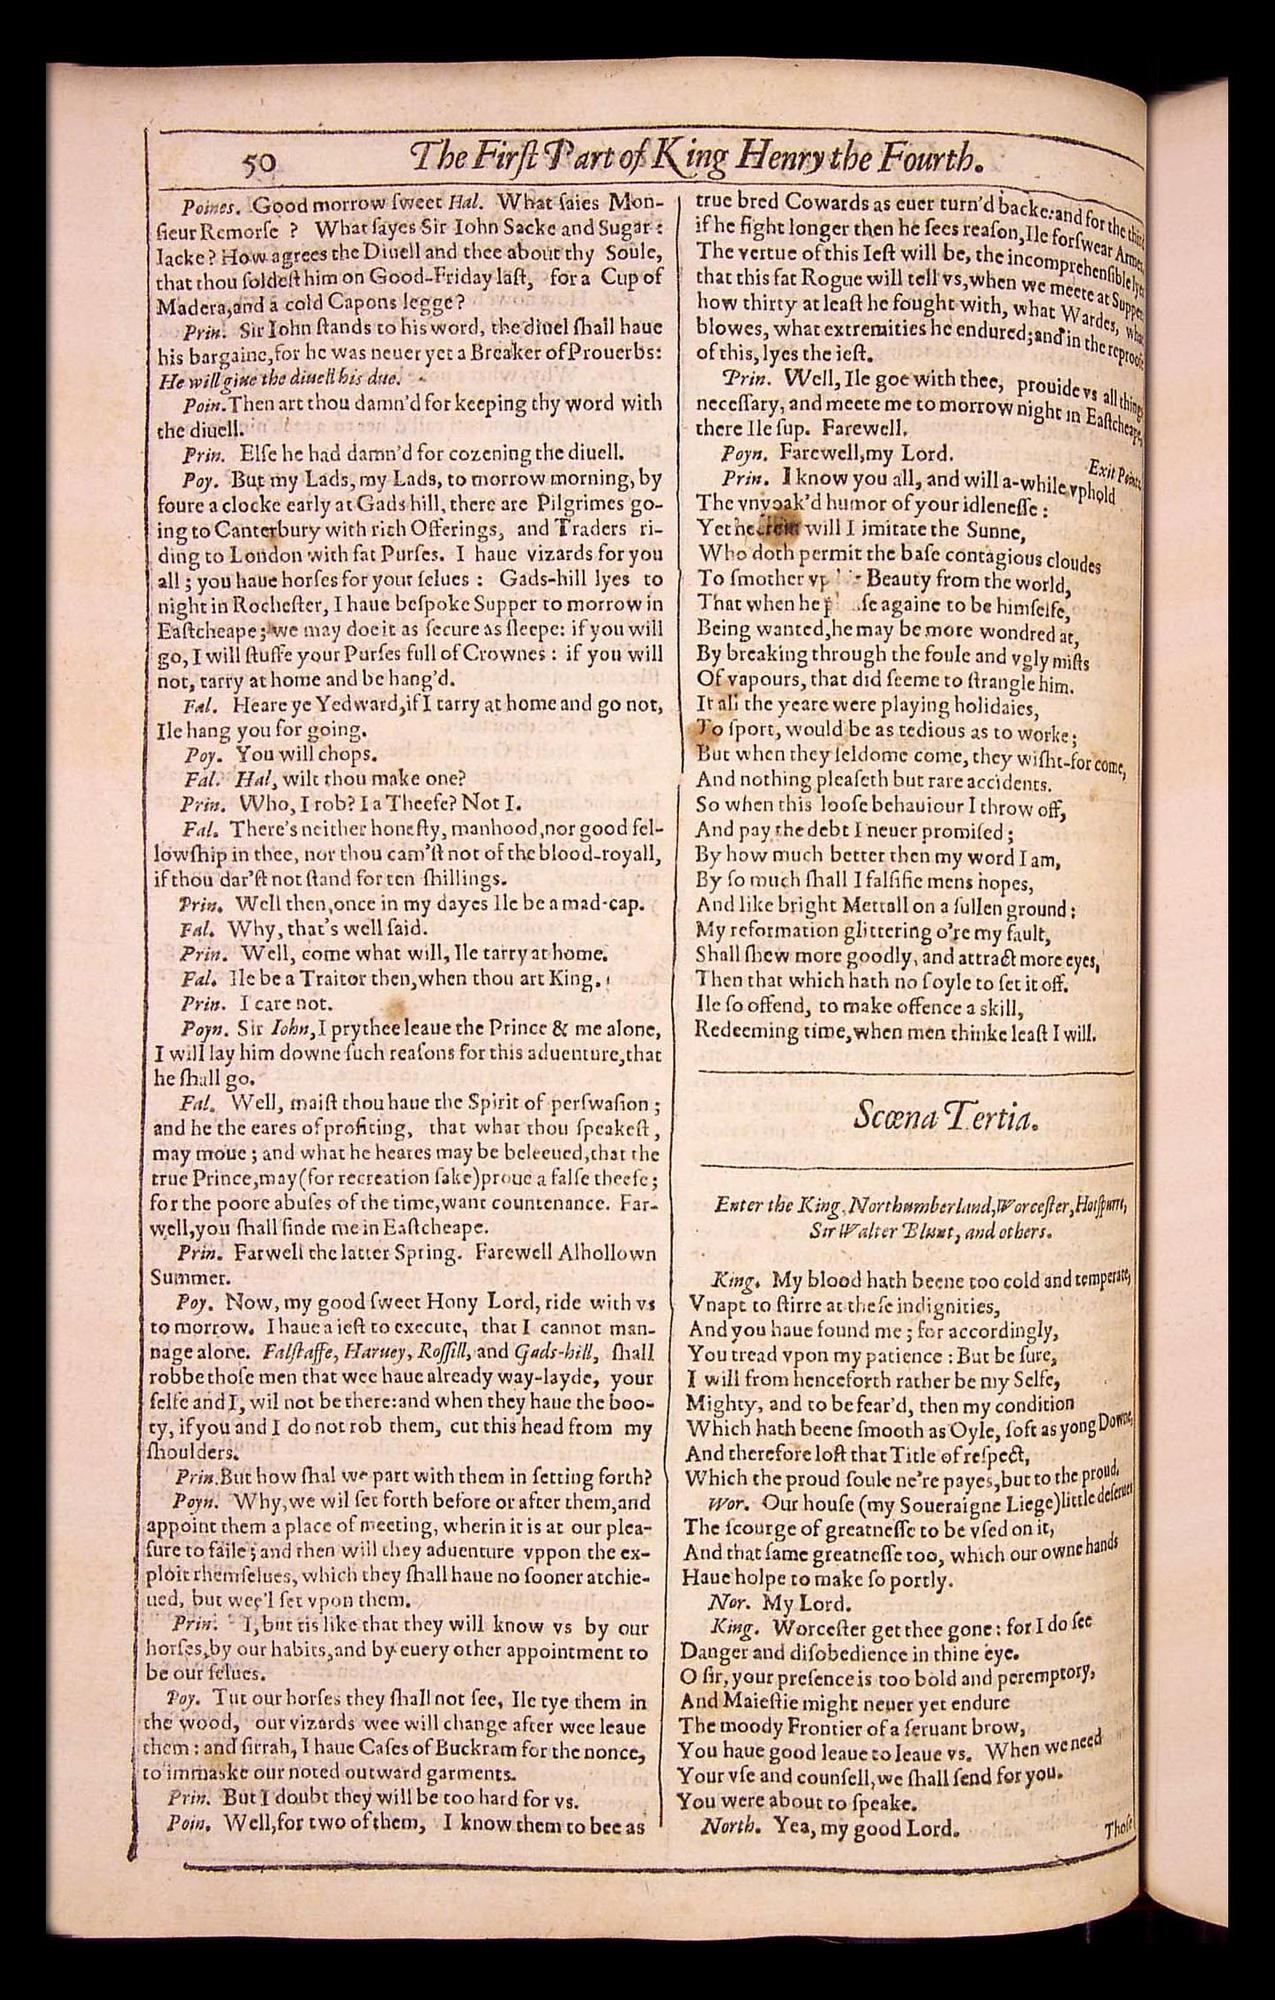 50 The Firſt Part of King Henry the Fourth.
Poines. Good morrow ſweet Hal. What ſaies Mon-
ſieur Remorſe ? What ſayes Sir Iohn Sacke and Sugar :
Iacke ? How agrees the Diuell and thee about thy Soule,
that thou ſoldeſt him on Good-Friday laſt, for a Cup of
Madera,and a cold Capons legge ?
Prin. Sir Iohn ſtands to his word, the diuel ſhall haue
his bargaine,for he was neuer yet a Breaker of Prouerbs:
He will giue the diuell his due.
Poin.Then art thou damn'd for keeping thy word with
the diuell.
Prin. Elſe he had damn'd for cozening the diuell.
Poy. But my Lads, my Lads, to morrow morning, by
foure a clocke early at Gads hill, there are Pilgrimes go-
ing to Canterbury with rich Offerings, and Traders ri-
ding to London with fat Purſes. I haue vizards for you
all ; you haue horſes for your ſelues : Gads-hill lyes to
night in Rocheſter, I haue beſpoke Supper to morrow in
Eaſtcheape ; we may doe it as ſecure as ſleepe: if you will
go, I will ſtuffe your Purſes full of Crownes : if you will
not, tarry at home and be hang'd.
Fal. Heare ye Yedward,if I tarry at home and go not,
Ile hang you for going.
Poy. You will chops.
Fal. Hal, wilt thou make one?
Prin. Who, I rob? I a Theefe? Not I.
Fal. There's neither honeſty, manhood,nor good fel-
lowſhip in thee, nor thou cam'ſt not of the blood-royall,
if thou dar'ſt not ſtand for ten ſhillings.
Prin. Well then,once in my dayes Ile be a mad-cap.
Fal. Why, that's well ſaid.
Prin. Well, come what will, Ile tarry at home.
Fal. Ile be a Traitor then,when thou art King.
Prin. I care not.
Poyn. Sir Iohn,I prythee leaue the Prince & me alone,
I will lay him downe ſuch reaſons for this aduenture,that
he ſhall go.
Fal. Well, maiſt thou haue the Spirit of perſwaſion ;
and he the eares of profiting, that what thou ſpeakeſt,
may moue ; and what he heares may be beleeued,that the
true Prince,may(for recreation ſake)proue a falſe theefe ;
for the poore abuſes of the time,want countenance. Far-
well,you ſhall finde me in Eaſtcheape.
Prin. Farwell the latter Spring. Farewell Alhollown
Summer.
Poy. Now, my good ſweet Hony Lord, ride with vs
to morrow. I haue a ieſt to execute, that I cannot man-
nage alone. Falſtaffe, Haruey, Roſſill, and Gads-hill, ſhall
robbe thoſe men that wee haue already way-layde, your
ſelfe and I, wil not be there:and when they haue the boo-
ty, if you and I do not rob them, cut this head from my
ſhoulders.
Prin.But how ſhal we part with them in ſetting forth?
Poyn. Why,we wil ſet forth before or after them,and
appoint them a place of meeting, wherin it is at our plea-
ſure to faile ; and then will they aduenture vppon the ex-
ploit themſelues, which they ſhall haue no ſooner atchie-
ued, but wee'l ſet vpon them.
Prin. I, but tis like that they will know vs by our
horſes,by our habits,and by euery other appointment to
be our ſelues.
Poy. Tut our horſes they ſhall not ſee, Ile tye them in
the wood, our vizards wee will change after wee leaue
them : and ſirrah, I haue Caſes of Buckram for the nonce,
to immaske our noted outward garments.
Prin. But I doubt they will be too hard for vs.
Poin. Well,for two of them, I know them to bee as
true bred Cowards as euer turn'd backe:and for the third
if he fight longer then he ſees reaſon,Ile forſwear Armes.
The vertue of this Ieſt will be, the incomprehenſible lyes
that this fat Rogue will tell vs,when we meete at Supper:
how thirty at leaſt he fought with, what Wardes, what
blowes, what extremities he endured;and in the reproofe
of this, lyes the ieſt.
Prin. Well, Ile goe with thee, prouide vs all things
neceſſary, and meete me to morrow night in Eaſtcheape,
there Ile ſup. Farewell.
Poyn. Farewell,my Lord. Exit Pointz
Prin. I know you all, and will a-while vphold
The vnyoak'd humor of your idleneſſe :
Yet heerein will I imitate the Sunne,
Who doth permit the baſe contagious cloudes
To ſmother vp Beauty from the world,
That when he againe to be himſelfe,
Being wanted,he may be more wondred at,
By breaking through the foule and vgly miſts
Of vapours, that did ſeeme to ſtrangle him.
If all the yeare were playing holidaies,
To ſport, would be as tedious as to worke ;
But when they ſeldome come, they wiſht-for come,
And nothing pleaſeth but rare accidents.
So when this looſe behauiour I throw off,
And pay the debt I neuer promiſed ;
By how much better then my word I am,
By ſo much ſhall I falſifie mens hopes,
And like bright Mettall on a ſullen ground :
My reformation glittering o're my fault,
Shall ſhew more goodly, and attract more eyes,
Then that which hath no ſoyle to ſet it off.
Ile ſo offend, to make offence a skill,
Redeeming time,when men thinke leaſt I will.
Scœna Tertia.
Enter the King, Northumberland,Worceſter,Hotſpurre,
Sir Walter Blunt, and others.
King. My blood hath beene too cold and temperate,
Vnapt to ſtirre at theſe indignities,
And you haue found me ; for accordingly,
You tread vpon my patience : But be ſure,
I will from henceforth rather be my Selfe,
Mighty, and to be fear'd, then my condition
Which hath beene ſmooth as Oyle, ſoft as yong Downe,
And therefore loſt that Title of reſpect,
Which the proud ſoule ne're payes,but to the proud.
Wor. Our houſe (my Soueraigne Liege)little deſerues
The ſcourge of greatneſſe to be vſed on it,
And that ſame greatneſſe too, which our owne hands
Haue holpe to make ſo portly.
Nor. My Lord.
King. Worceſter get thee gone : for I do ſee
Danger and diſobedience in thine eye.
O ſir, your preſence is too bold and peremptory,
And Maieſtie might neuer yet endure
The moody Frontier of a ſeruant brow,
You haue good leaue to leaue vs. When we need
Your vſe and counſell,we ſhall ſend for you.
You were about to ſpeake.
North. Yea, my good Lord.
Thoſe